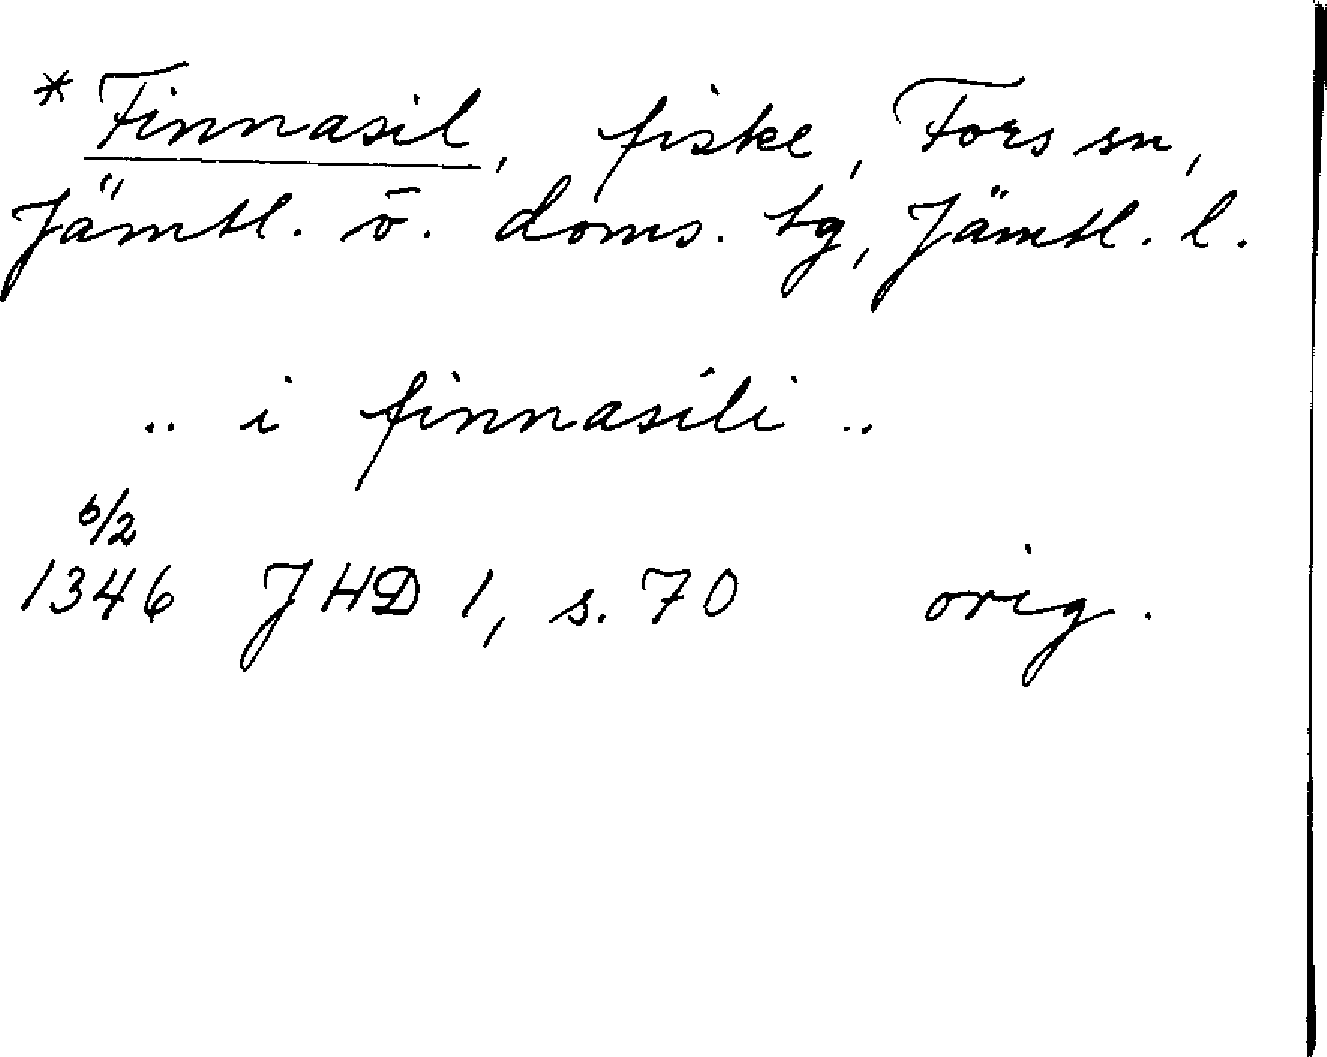 * Finnasil, fiske, Fors sn,
Jämtl. ö. doms. tg, Jämtl. l.
.. i finnasili ..
6/2
1346 JHD 1, s. 70 orig.